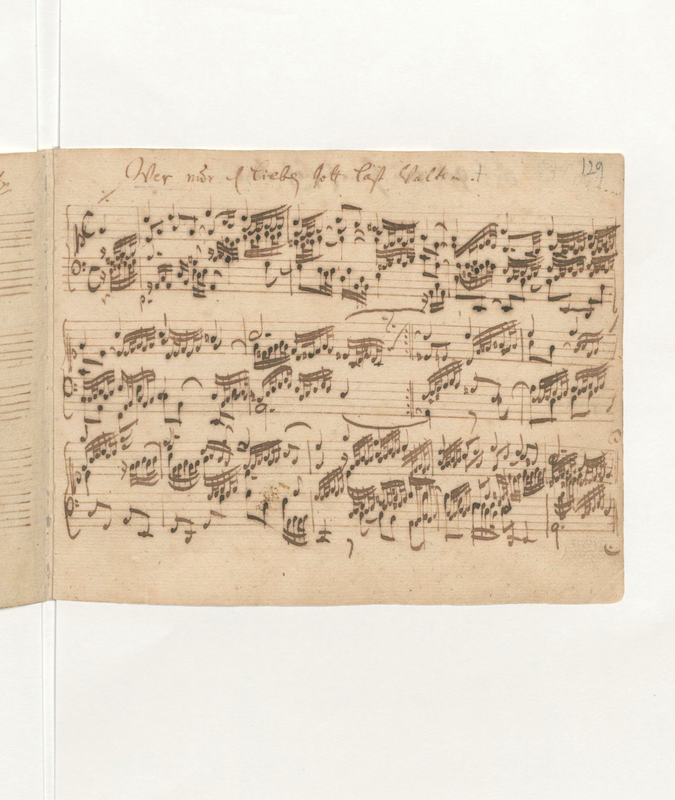 Wer nur d lieben Gott läst Walten.
129